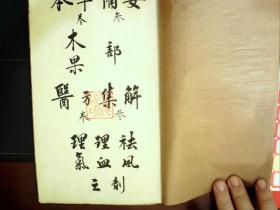 本草備要
叁 叁
木果部
醫方集解
叁 叁
理氣
理血
祛風
之劑